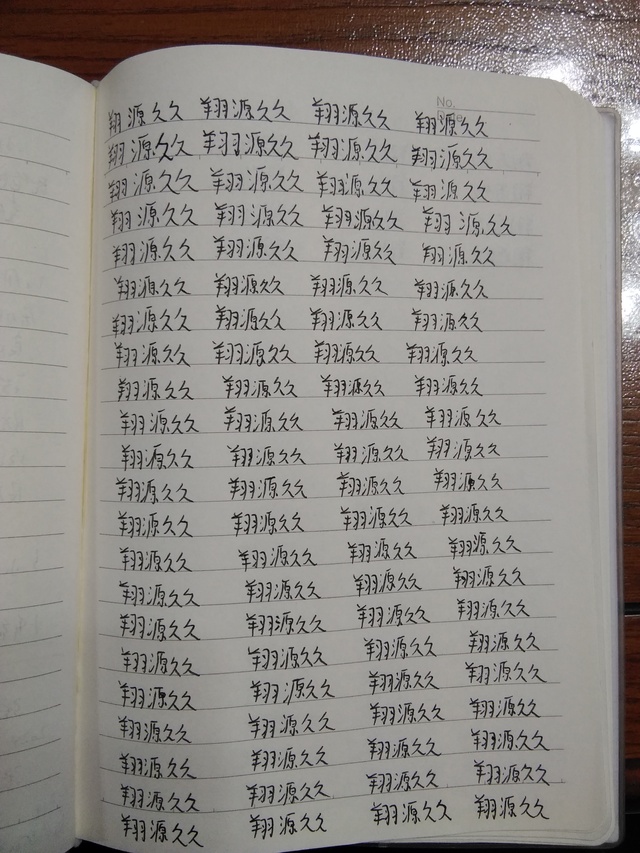 No.
翔源久久 翔源久久 翔源久久 翔源久久
翔源久久 翔源久久 翔源久久 翔源久久
翔源久久 翔源久久 翔源久久 翔源久久
翔源久久 翔源久久 翔源久久 翔源久久
翔源久久 翔源久久 翔源久久 翔源久久
翔源久久 翔源久久 翔源久久 翔源久久
翔源久久 翔源久久 翔源久久 翔源久久
翔源久久 翔源久久 翔源久久 翔源久久
翔源久久 翔源久久 翔源久久 翔源久久
翔源久久 翔源久久 翔源久久 翔源久久
翔源久久 翔源久久 翔源久久 翔源久久
翔源久久 翔源久久 翔源久久 翔源久久
翔源久久 翔源久久 翔源久久 翔源久久
翔源久久 翔源久久 翔源久久 翔源久久
翔源久久 翔源久久 翔源久久 翔源久久
翔源久久 翔源久久 翔源久久 翔源久久
翔源久久 翔源久久 翔源久久 翔源久久
翔源久久 翔源久久 翔源久久 翔源久久
翔源久久 翔源久久 翔源久久 翔源久久
翔源久久 翔源久久 翔源久久 翔源久久
翔源久久 翔源久久 翔源久久 翔源久久
翔源久久 翔源久久 翔源久久 翔源久久